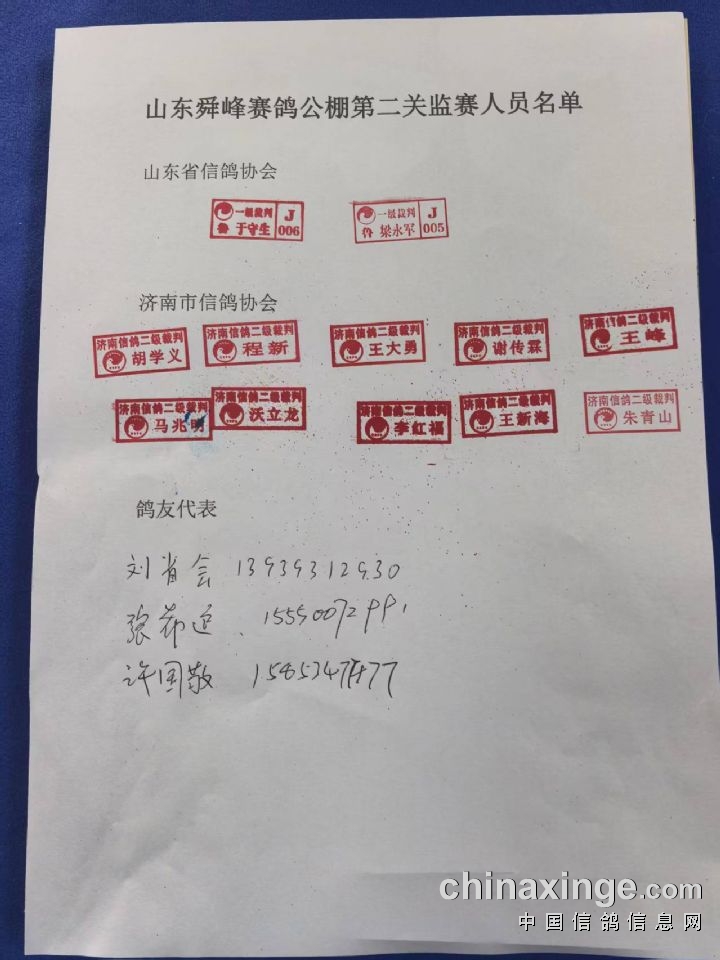 山东舜峰赛鸽公棚第二关监赛人员名单
山东省信鸽协会
一级裁判 J
鲁 于守生 006
一级裁判 J
鲁 梁永军 005
济南市信鸽协会
济南信鸽二级裁判
胡学义
济南信鸽二级裁判
程新
济南信鸽二级裁判
王大勇
济南信鸽二级裁判
谢传霖
济南信鸽二级裁判
王峰
济南信鸽二级裁判
马兆明
济南信鸽二级裁判
沃立龙
济南信鸽二级裁判
李红福
济南信鸽二级裁判
王新海
济南信鸽二级裁判
朱青山
鸽友代表
刘肖会 13939312930
张
许国敬
chinaxinge.com
中国信鸽信息网